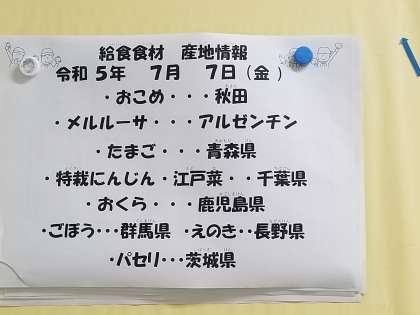 給食食材　産地情報
令和 5年　7月　7日（金）
・おこめ・・・秋田
・メルルーサ・・・アルゼンチン
・たまご・・・青森県
・特栽にんじん・江戸菜・・千葉県
・おくら・・・鹿児島県
・ごぼう・・・群馬県　・えのき・・長野県
・パセリ・・・茨城県